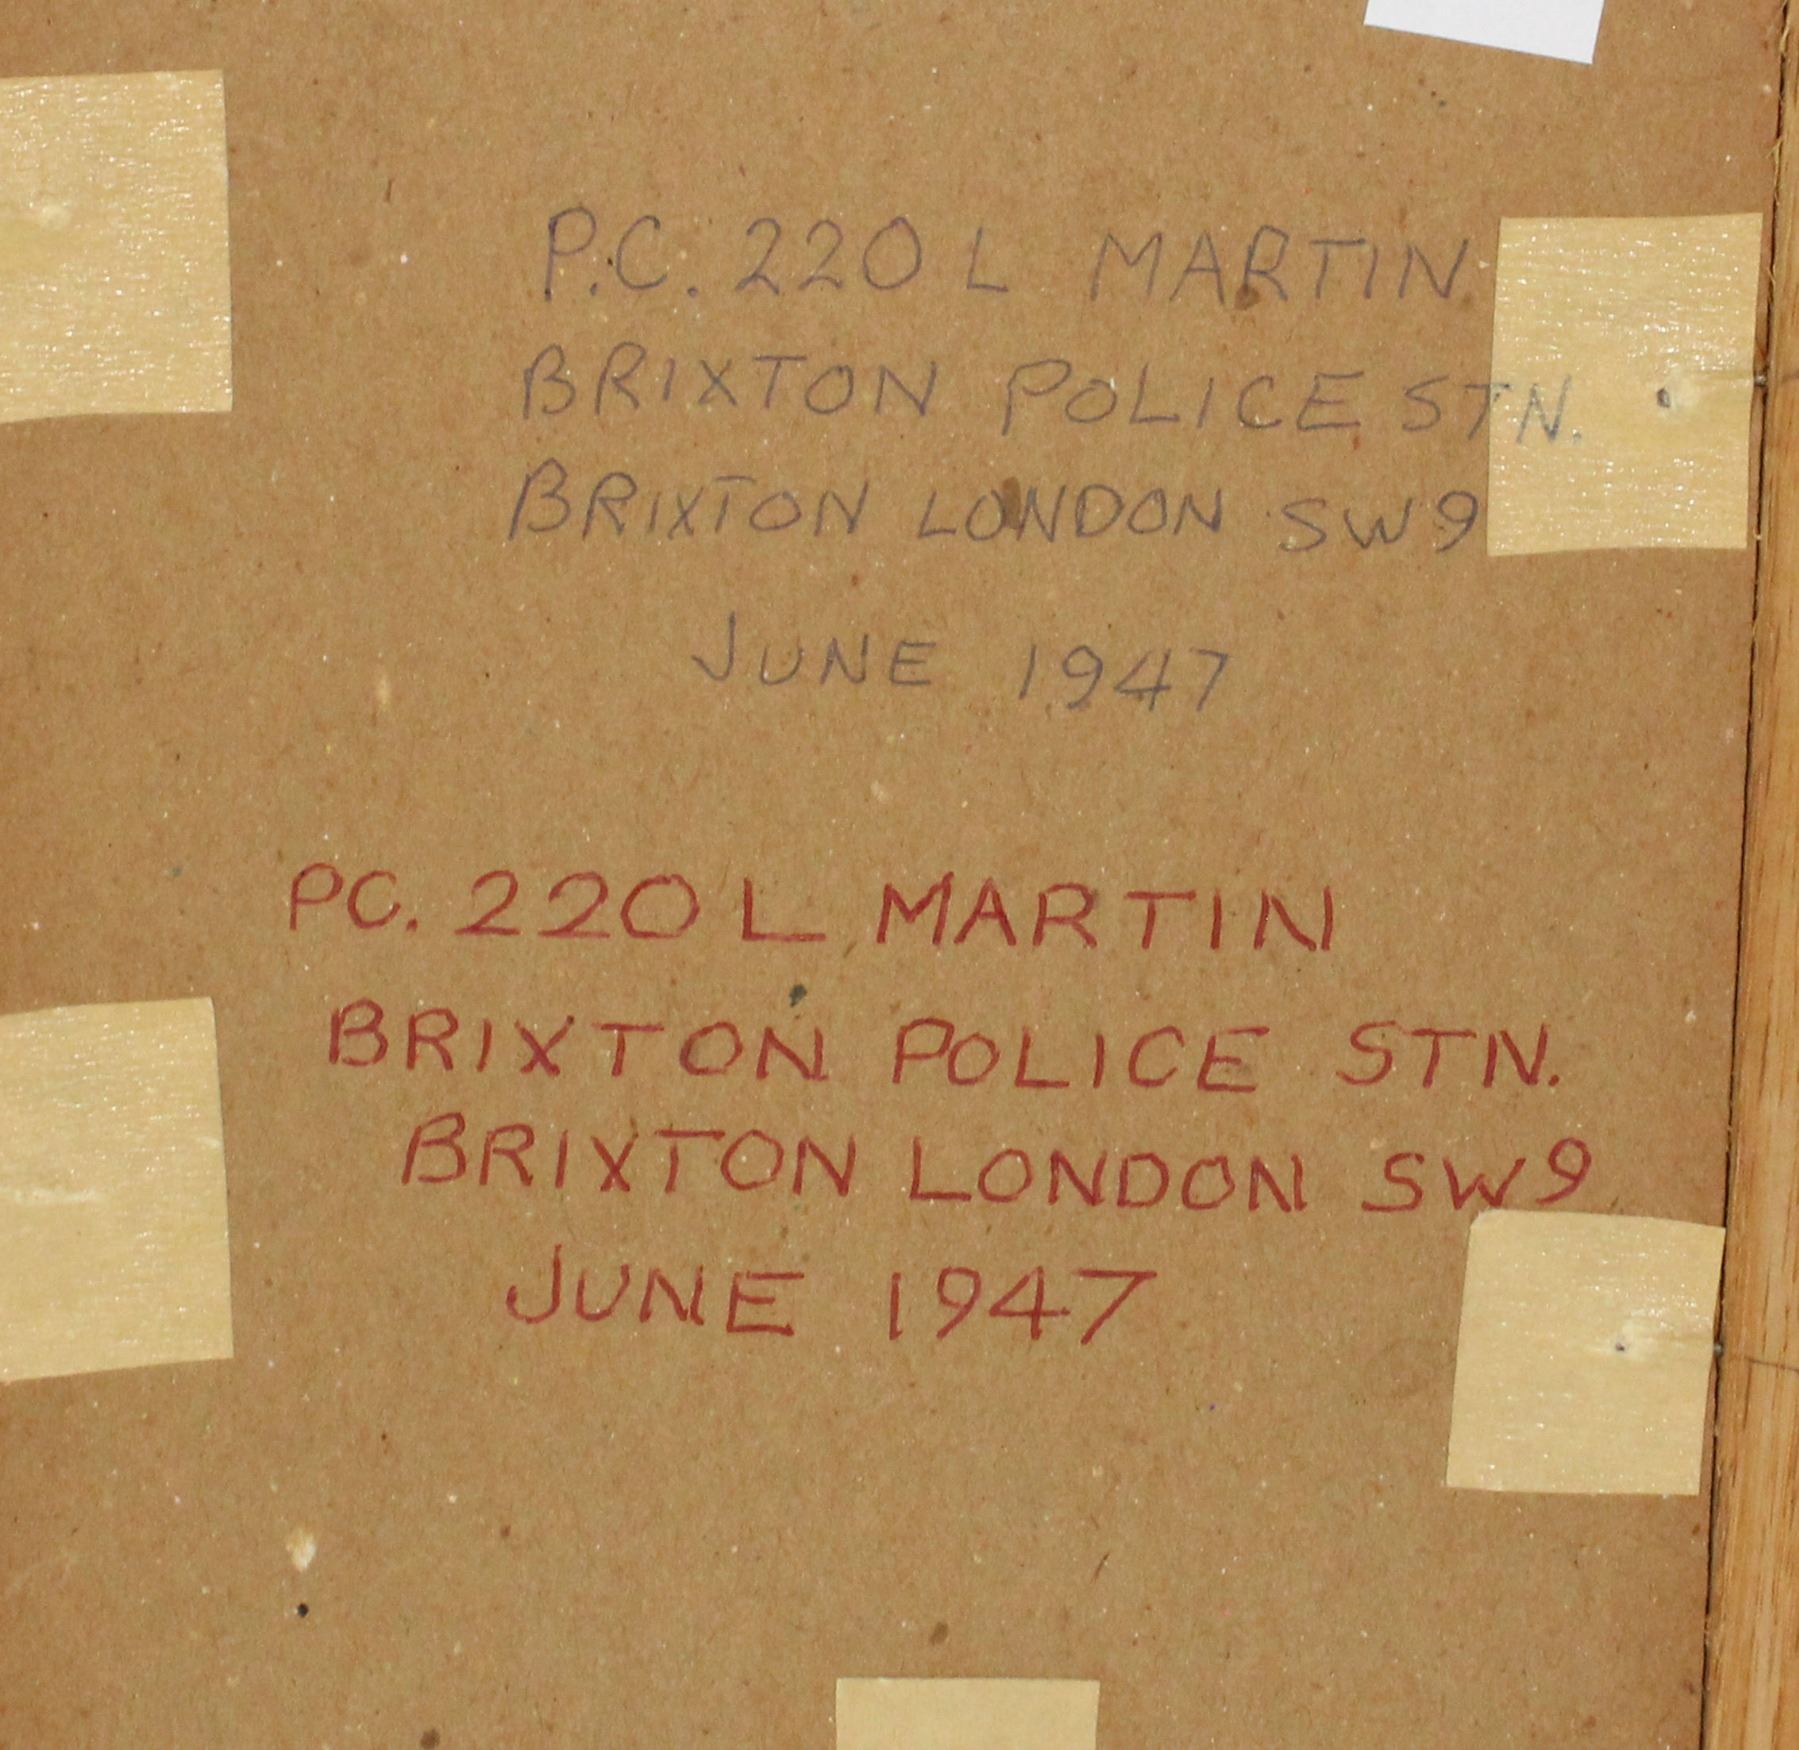 P.C. 220 L MARTIN
BRIXTON POLICE STN.
BRIXTON LONDON SW9
JUNE 1947
PC. 220 L MARTIN
BRIXTON POLICE STN.
BRIXTON LONDON SW9
JUNE 1947